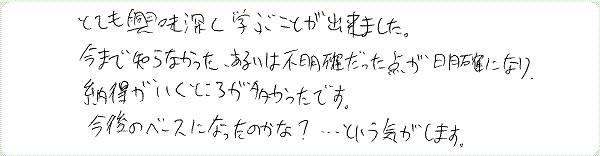 とても興味深く学ぶことが出来ました。
今まで知らなかった、あるいは不明確だった点が明確になり、
納得がいくところが多かったです。
今後のベースになったのかな?…という気がします。